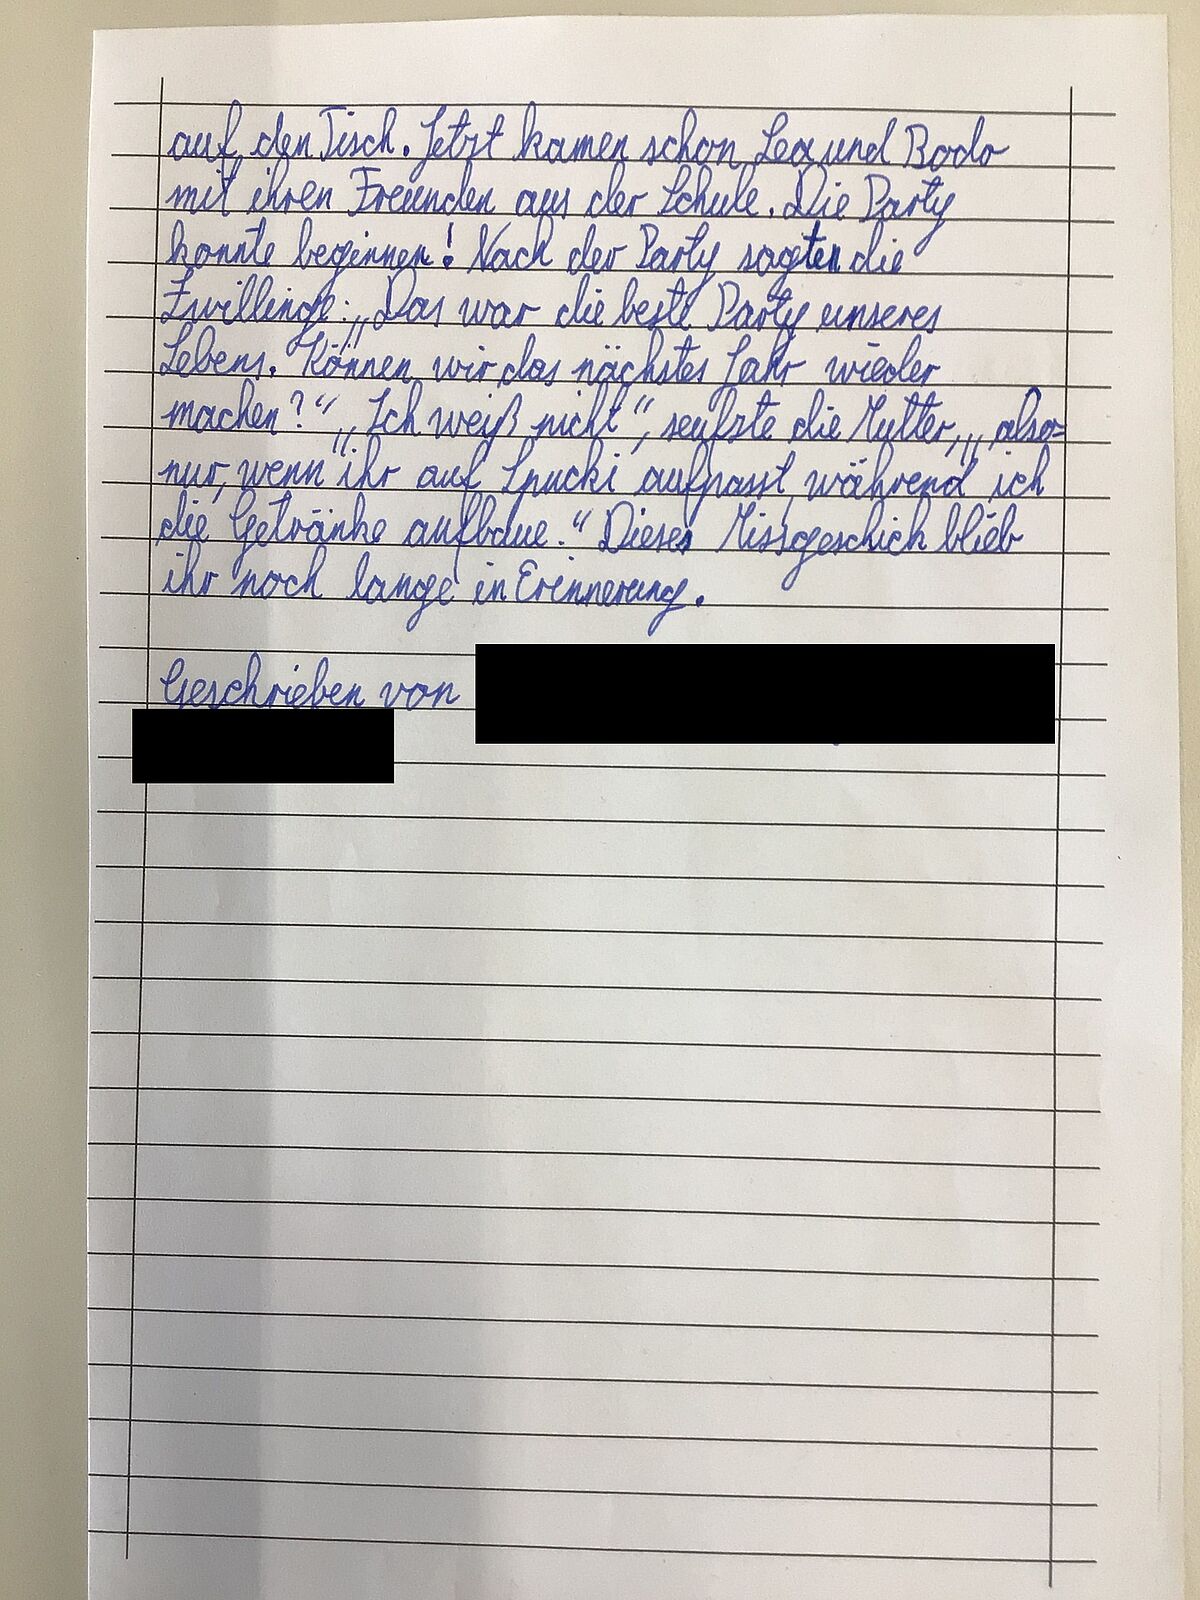 auf den Tisch. Jetzt kamen schon Lea und Bodo
mit ihren Freunden aus der Schule. Die Party
konnte beginnen! Nach der Party sagten die
Zwillinge: „Das war die beste Party unseres
Lebens. Können wir das nächstes Jahr wieder
machen?“ „Ich weiß nicht“, seufzte die Mutter, „also
nur, wenn ihr auf Spucki aufpasst, während ich
die Getränke aufbaue.“ Dieses Missgeschick blieb
ihr noch lange in Erinnerung.
Geschrieben von